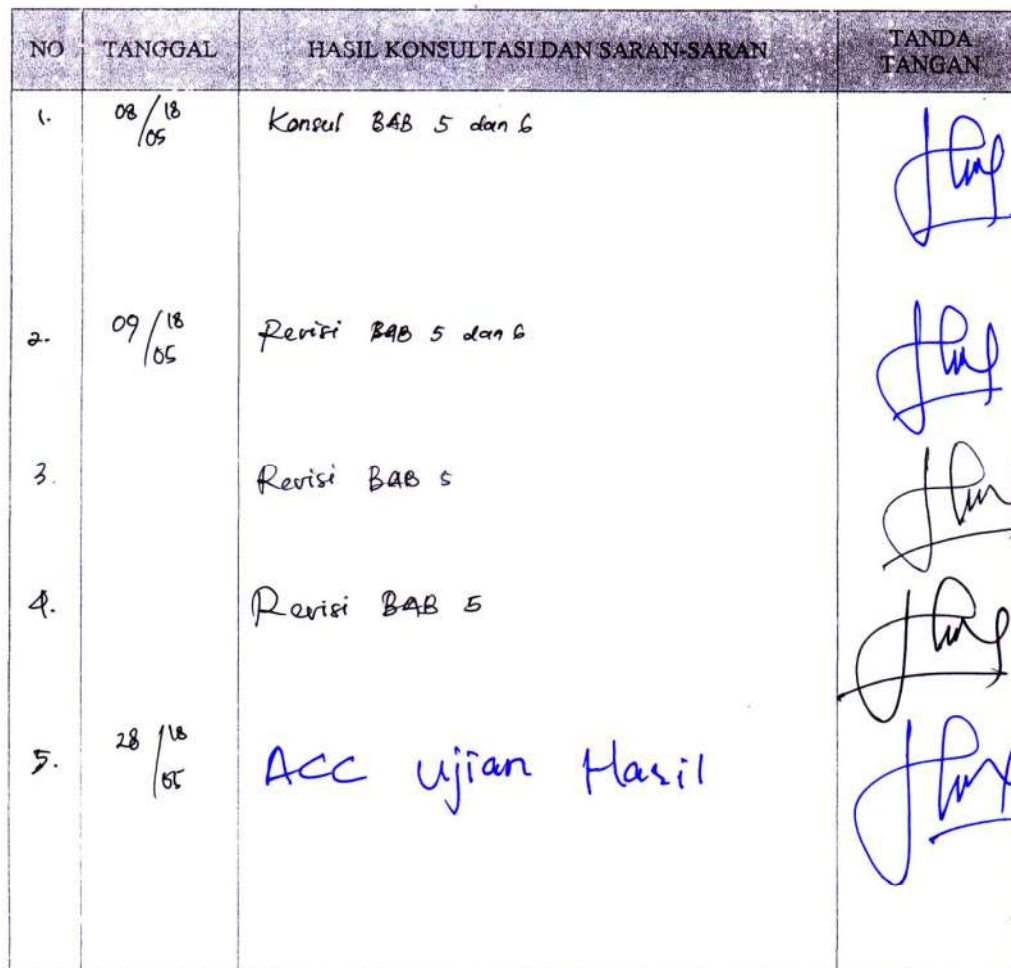 NO TANGGAL HASIL KONSULTASI DAN SARAN-SARAN TANDA TANGAN
1. 08/18/05 Konsul BAB 5 dan 6
2. 09/18/05 Revisi BAB 5 dan 6
3. Revisi BAB 5
4. Revisi BAB 5
5. 28/18/05 ACC Ujian Hasil